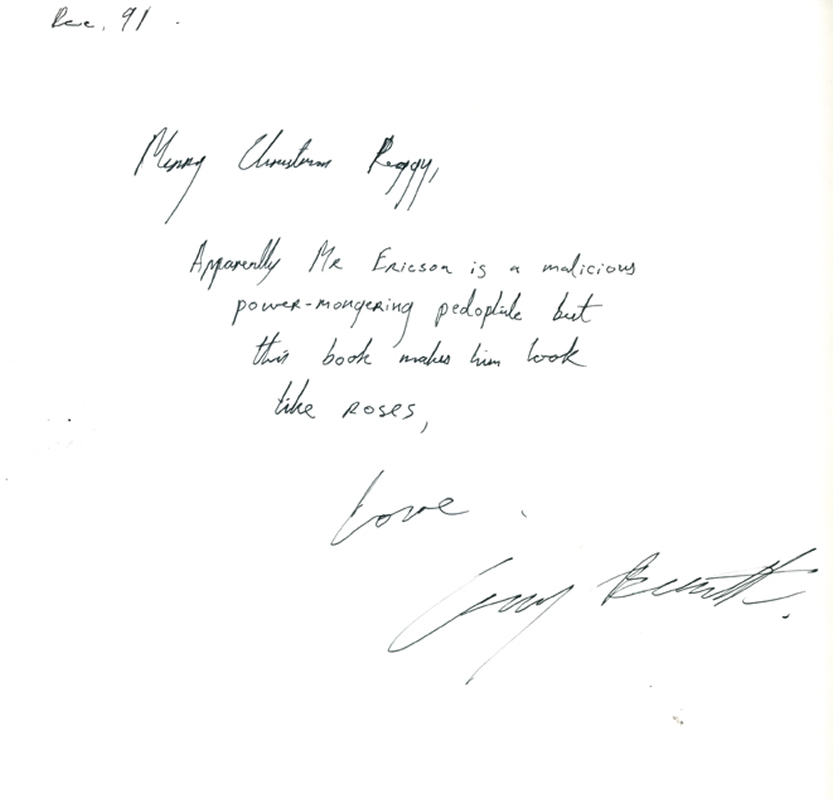 Dec. 91.
Merry Christmas Reggy,
Apparently Mr Ericson is a malicious
power-mongering pedophile but
this book makes him look
like roses,
Love